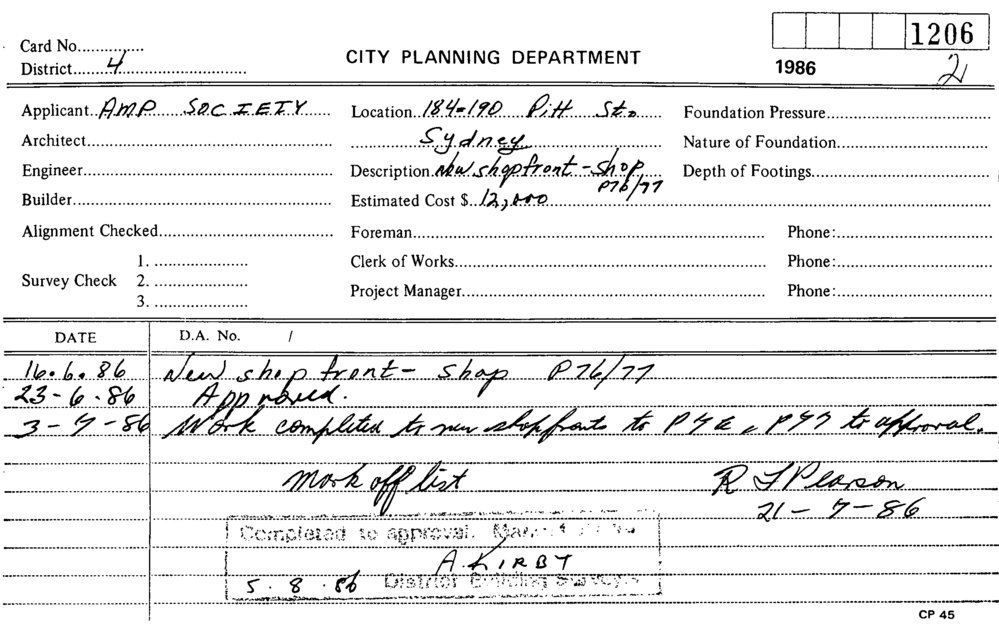 1206
Card No...............
District........4..............................
CITY PLANNING DEPARTMENT
1986
2
Applicant..AMP SOCIETY
Location..184-190 Pitt St.
Foundation Pressure
Architect
Sydney
Nature of Foundation
Engineer
Description.New shopfront - shop
P76/77
Depth of Footings
Builder
Estimated Cost $..12,000
Alignment Checked
Foreman
Phone:
Survey Check
1.
2.
3.
Clerk of Works
Phone:
Project Manager
Phone:
DATE
D.A. No. /
16.6.86 New shop front - shop P76/77
23-6-86 Approved.
3-7-86 Work completed to new shopfronts to P76 & P77 to approval.
Mark off list R F Pearson
21-7-86
Completed to approval.
A. KIRBY
5.8.86 District Building Surveyor
CP 45